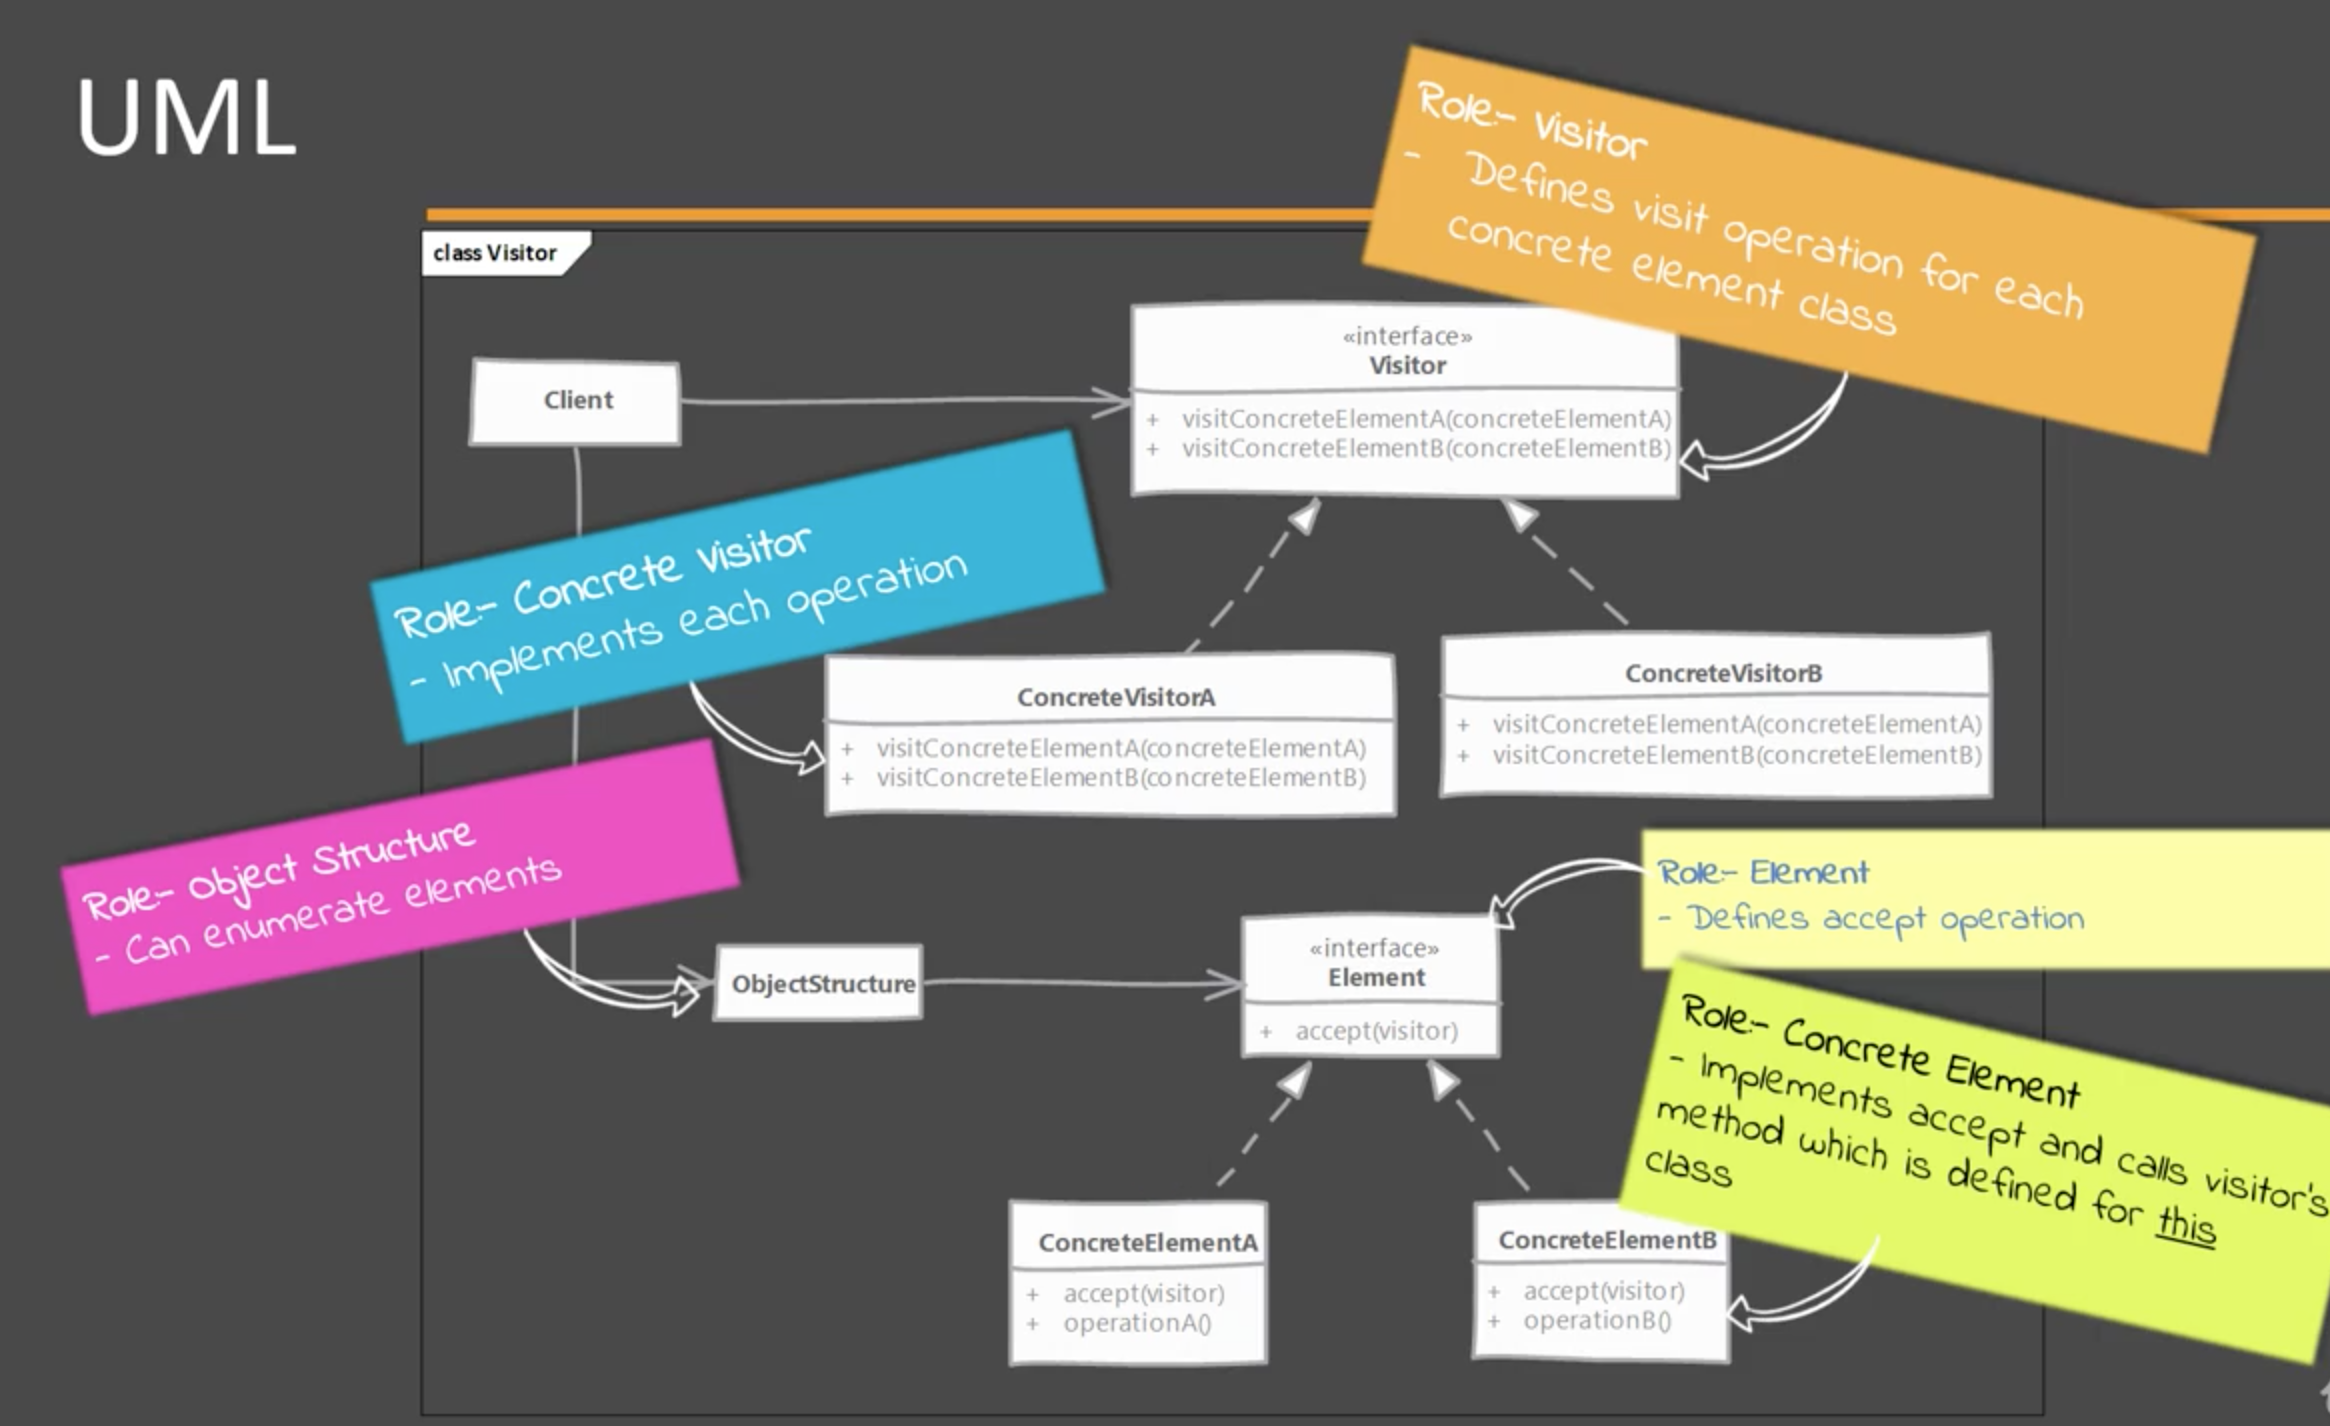 UML
Role:- Visitor
- Defines visit operation for each
concrete element class
class Visitor
«interface»
Visitor
+ visitConcreteElementA(concreteElementA)
+ visitConcreteElementB(concreteElementB)
Client
Role:- Concrete Visitor
- Implements each operation
ConcreteVisitorA
+ visitConcreteElementA(concreteElementA)
+ visitConcreteElementB(concreteElementB)
ConcreteVisitorB
+ visitConcreteElementA(concreteElementA)
+ visitConcreteElementB(concreteElementB)
Role:- Object Structure
- Can enumerate elements
ObjectStructure
«interface»
Element
+ accept(visitor)
Role:- Element
- Defines accept operation
Role:- Concrete Element
- Implements accept and calls visitor's
method which is defined for this
class
ConcreteElementA
+ accept(visitor)
+ operationA()
ConcreteElementB
+ accept(visitor)
+ operationB()